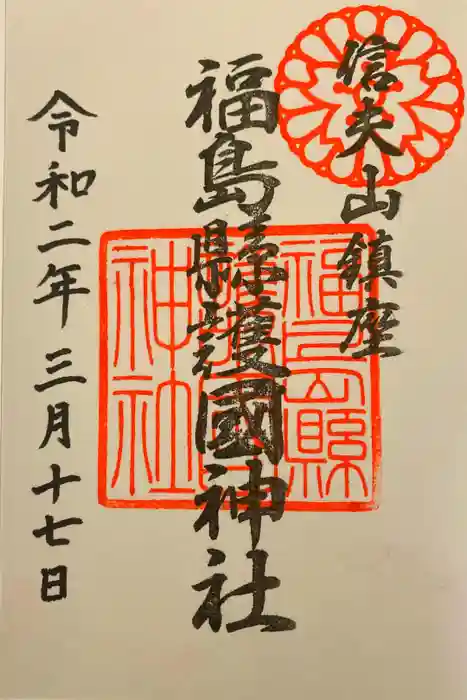 信夫山鎮座
福島縣護國神社
福島縣護國神社
令和二年三月十七日